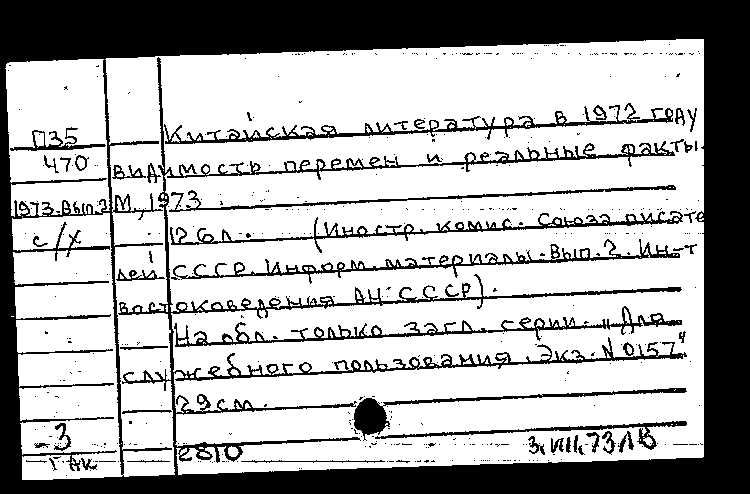 Китайская литература в 1972 году
П35
470
видимость перемен и реальные факты.
1973. Вып.2
М., 1973
с/х
126л. (Иностр. комис. Союза писате
лей СССР. Информ. материалы. Вып. 2. Ин-т
востоковедения АН СССР).
На обл. только загл. серии. "Для
служебного пользования. Экз. N 0157"
29см.
-3
2810
3.VIII.73ЛВ